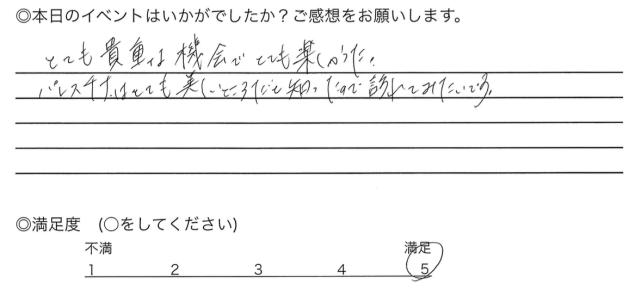 ◎本日のイベントはいかがでしたか？ご感想をお願いします。
とても貴重な機会でとても楽しかった。
パレスチナはとても美しいところだと知ったので訪れてみたいです。
◎満足度　(○をしてください)
不満 満足
1 2 3 4 5